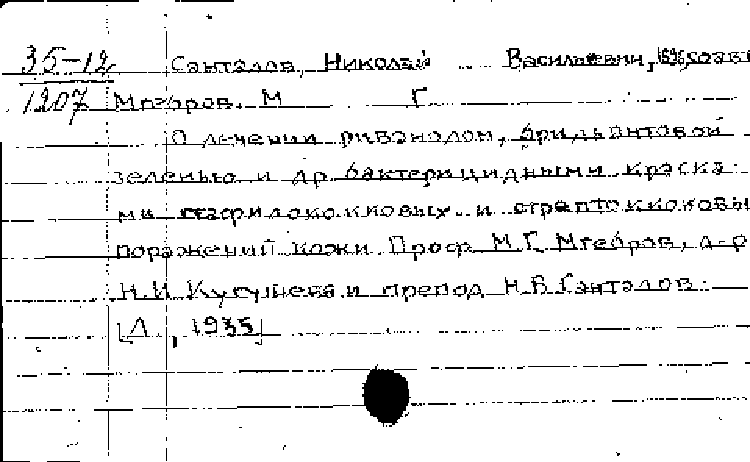 35-12 Санталов, Николай Васильевич, соавт
1207 Мгебров. М Г
О лечении риванолом, бридьянтовой
зеленью и др. бактерицидными краска-
ми стафилококковых и стрептококковы
поражений кожи. Проф М.Г. Мгебров, д-р
Н.И. Кугушева и препод Н.В. Санталов.
[Л., 1935]